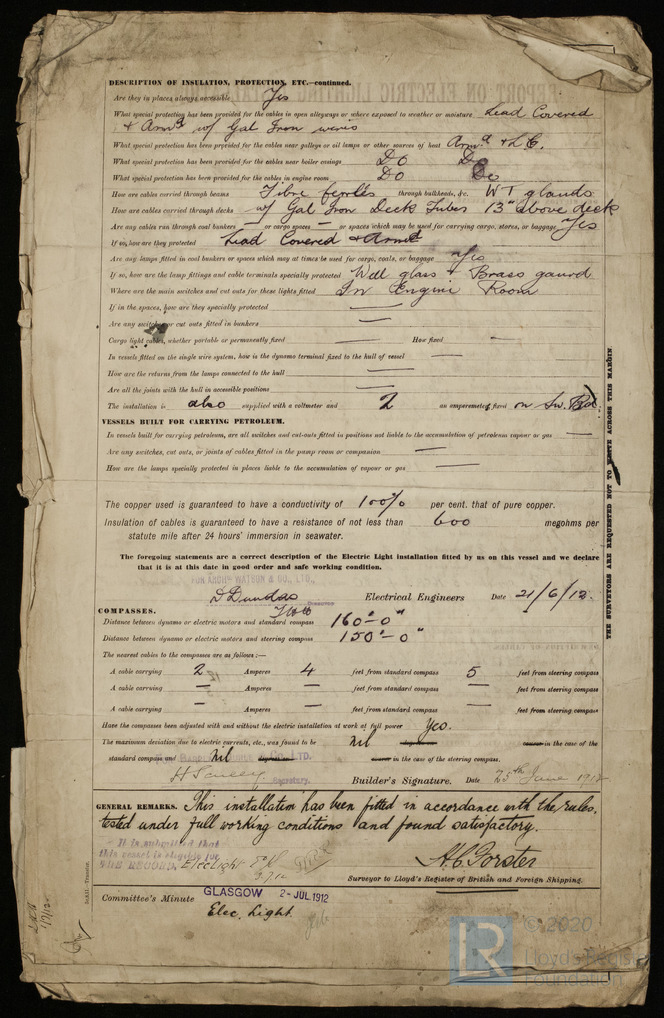 DESCRIPTION OF INSULATION, PROTECTION, ETC.—continued.
Are they in places always accessible Yes
What special protection has been provided for the cables in open alleyways or where exposed to weather or moisture Lead Covered
& Armd w/ Gal Iron wires
What special protection has been provided for the cables near galleys or oil lamps or other sources of heat Armd & L.C.
What special protection has been provided for the cables near boiler casings Do Do
What special protection has been provided for the cables in engine room Do Do
How are cables carried through beams Fibre ferrls through bulkheads, &c. W T glands
How are cables carried through decks w/ Gal Iron Deck Tubes 13" above deck
Are any cables run through coal bunkers — or cargo spaces — or spaces which may be used for carrying cargo, stores, or baggage Yes
If so, how are they protected Lead Covered & Armd
Are any lamps fitted in coal bunkers or spaces which may at times be used for cargo, coals, or baggage Yes
If so, how are the lamp fittings and cable terminals specially protected Well glass & Brass gaurd
Where are the main switches and cut outs for these lights fitted In Engine Room
If in the spaces, how are they specially protected —
Are any switches or cut outs fitted in bunkers —
Cargo light cables, whether portable or permanently fixed — How fixed -
In vessels fitted on the single wire system, how is the dynamo terminal fixed to the hull of vessel —
How are the returns from the lamps connected to the hull —
Are all the joints with the hull in accessible positions —
The installation is also supplied with a voltmeter and 2 an amperemeters fixed on Sw. Bd.
VESSELS BUILT FOR CARRYING PETROLEUM.
In vessels built for carrying petroleum, are all switches and cut-outs fitted in positions not liable to the accumulation of petroleum vapour or gas —
Are any switches, cut outs, or joints of cables fitted in the pump room or companion —
How are the lamps specially protected in places liable to the accumulation of vapour or gas —
The copper used is guaranteed to have a conductivity of 100% per cent. that of pure copper.
Insulation of cables is guaranteed to have a resistance of not less than 600 megohms per
statute mile after 24 hours' immersion in seawater.
The foregoing statements are a correct description of the Electric Light installation fitted by us on this vessel and we declare
that it is at this date in good order and safe working condition.
FOR ARCHD WATSON & CO., LTD.,
D Dundas Electrical Engineers Date 21/6/12.
COMPASSES.
Distance between dynamo or electric motors and standard compass 160'-0"
Distance between dynamo or electric motors and steering compass 150'-0"
The nearest cables to the compasses are as follows:—
A cable carrying 2 Amperes 4 feet from standard compass 5 feet from steering compass
A cable carrying — Amperes — feet from standard compass — feet from steering compass
A cable carrying — Amperes — feet from standard compass — feet from steering compass
Have the compasses been adjusted with and without the electric installation at work at full power Yes.
The maximum deviation due to electric currents, etc., was found to be nil degrees course in the case of the
standard compass and nil degrees course in the case of the steering compass.
Secretary. Builder's Signature. Date 25th June 1912
GENERAL REMARKS. This installation has been fitted in accordance with the rules,
tested under full working conditions and found satisfactory.
It is submitted that
this vessel is eligible for
THE RECORD. Elec Light
H.C. Forster
Surveyor to Lloyd's Register of British and Foreign Shipping.
Committee's Minute GLASGOW 2-JUL 1912
Elec. Light.
THE SURVEYORS ARE REQUESTED NOT TO WRITE ACROSS THIS MARGIN.
© 2020
LR
Lloyd's Register
Foundation